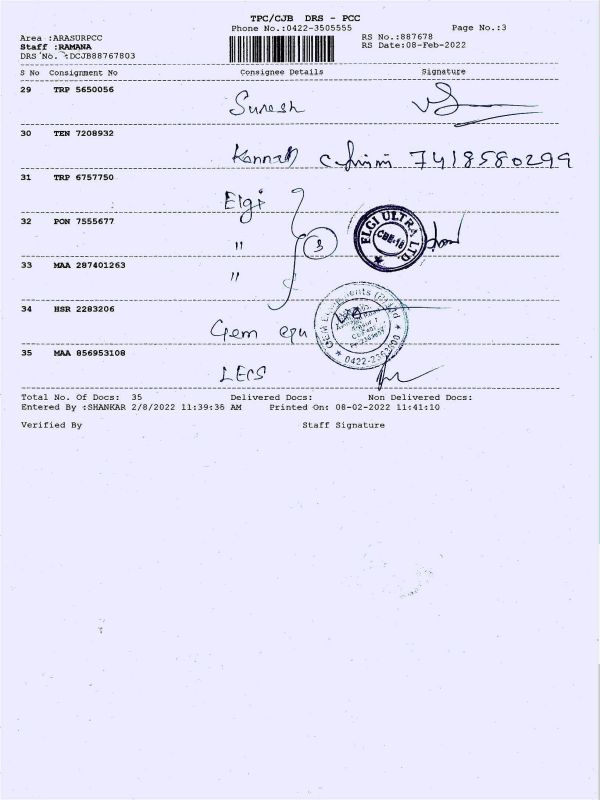 TPC/CJB DRS - PCC
Phone No.:0422-3505555
Page No.:3
Area :ARASURPCC
RS No.:887678
Staff :RAMANA
RS Date:08-Feb-2022
DRS No. :DCJB88767803
S No Consignment No Consignee Details Signature
29 TRP 5650056
Suresh
30 TEN 7208932
Kannan 7418580299
31 TRP 6757750
Elgi
32 PON 7555677
"
3
ELGI ULTRA LTD.
CBE-18
33 MAA 287401263
"
34 HSR 2283206
Gem equ
35 MAA 856953108
LECS
Total No. Of Docs: 35 Delivered Docs: Non Delivered Docs:
Entered By :SHANKAR 2/8/2022 11:39:36 AM Printed On: 08-02-2022 11:41:10
Verified By Staff Signature